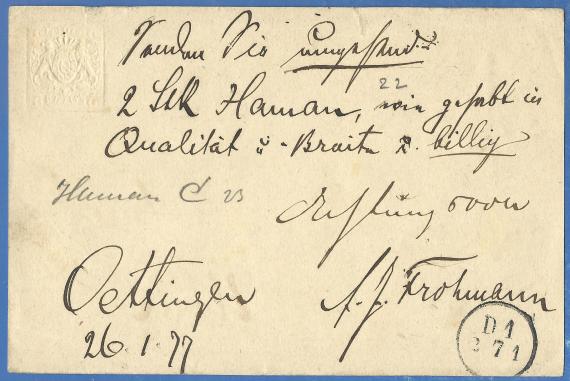 Senden Sie umgehend
22
2 Stk Haman, wie gehabt in
Qualität u. Breite z. billig
Haman C 23
Achtungsvoll
Oettingen
Frohmann
26.1.77
D1
2 71